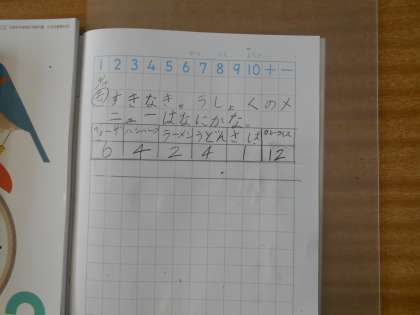 1 2 3 4 5 6 7 8 9 10 + −
すきなきゅうしょくのメ
ニューはなにかな。
ハンバーグ ラーメン うどん さば カレーライス
6 4 2 4 1 12